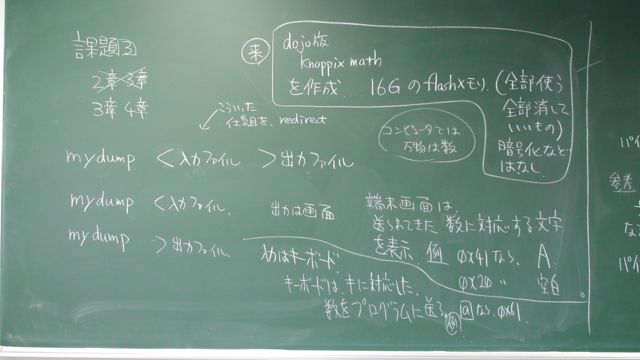 課題③
2章 3章
3章 4章
来
dojo版
knoppix math
を作成. 16Gのflashメモリ.(全部使う
全部消して
いいもの)
暗号化など
はなし
こういった
仕組を. redirect
コンピュータでは
万物は数
mydump <入力ファイル >出力ファイル
mydump <入力ファイル. 出力は画面
mydump >出力ファイル
入力はキーボード.
キーボードは、キに対応した.
数をプログラムに送る. 例 a なら. 0x61.
端末画面は、
送られてきた数に対応する文字
を表示 例 0x41なら、 A
0x20 〃 空白
パイ
参考
な
パイ